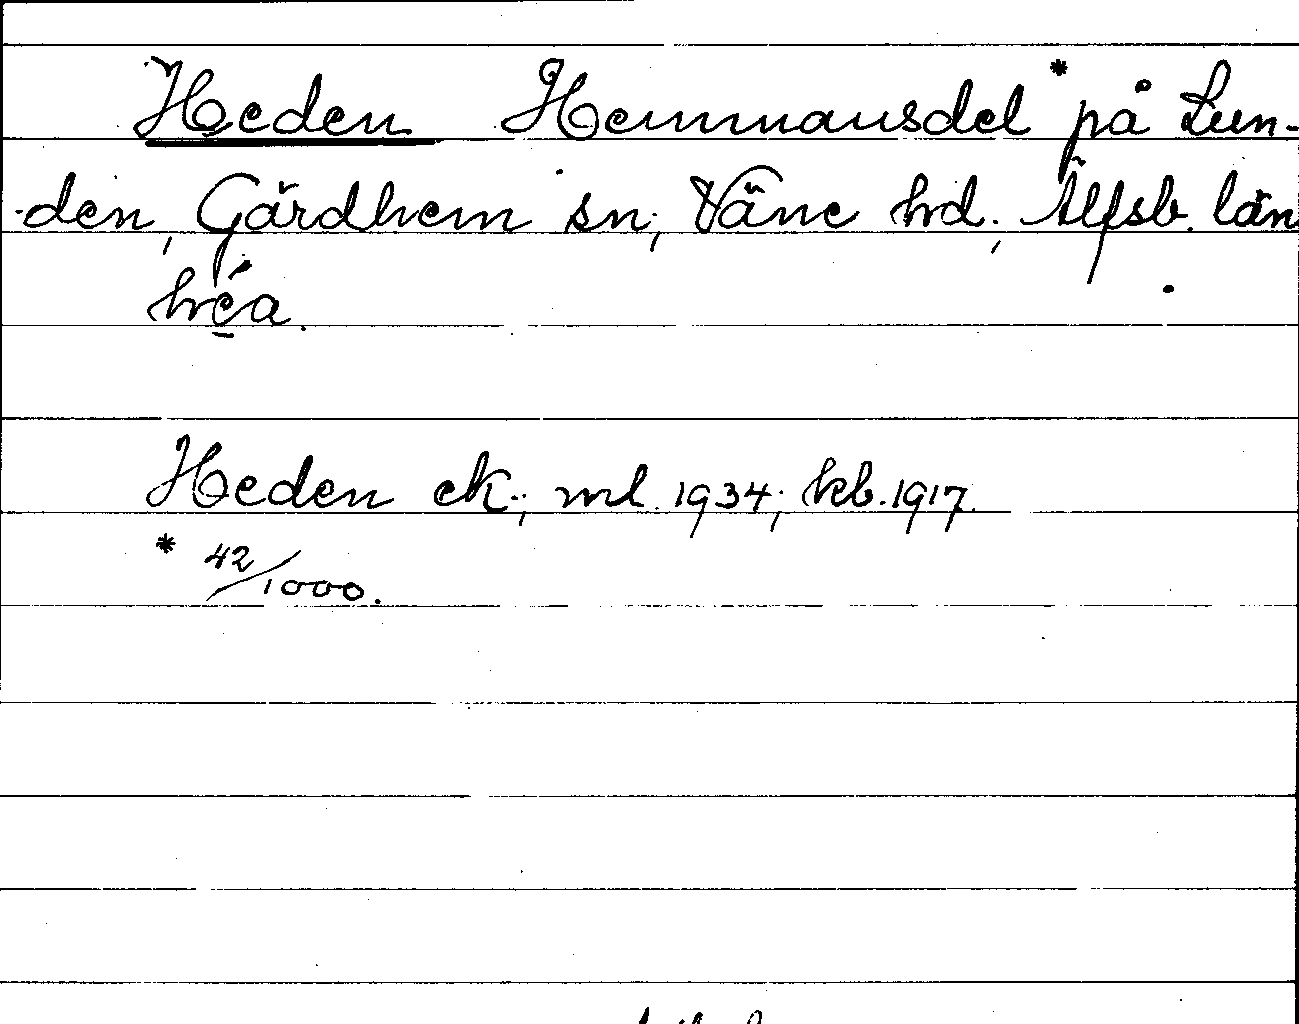 Heden Hemmansdel* på Lun-
den, Gärdhem sn, Väne hd, Älfsb. län
héa.
Heden ek.; ml. 1934; kb. 1917.
* 42/1000.